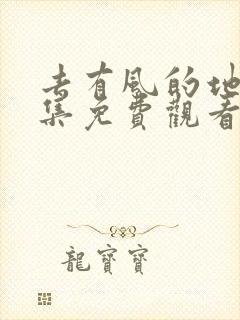 去有風的地
集免費觀看
龍寶寶